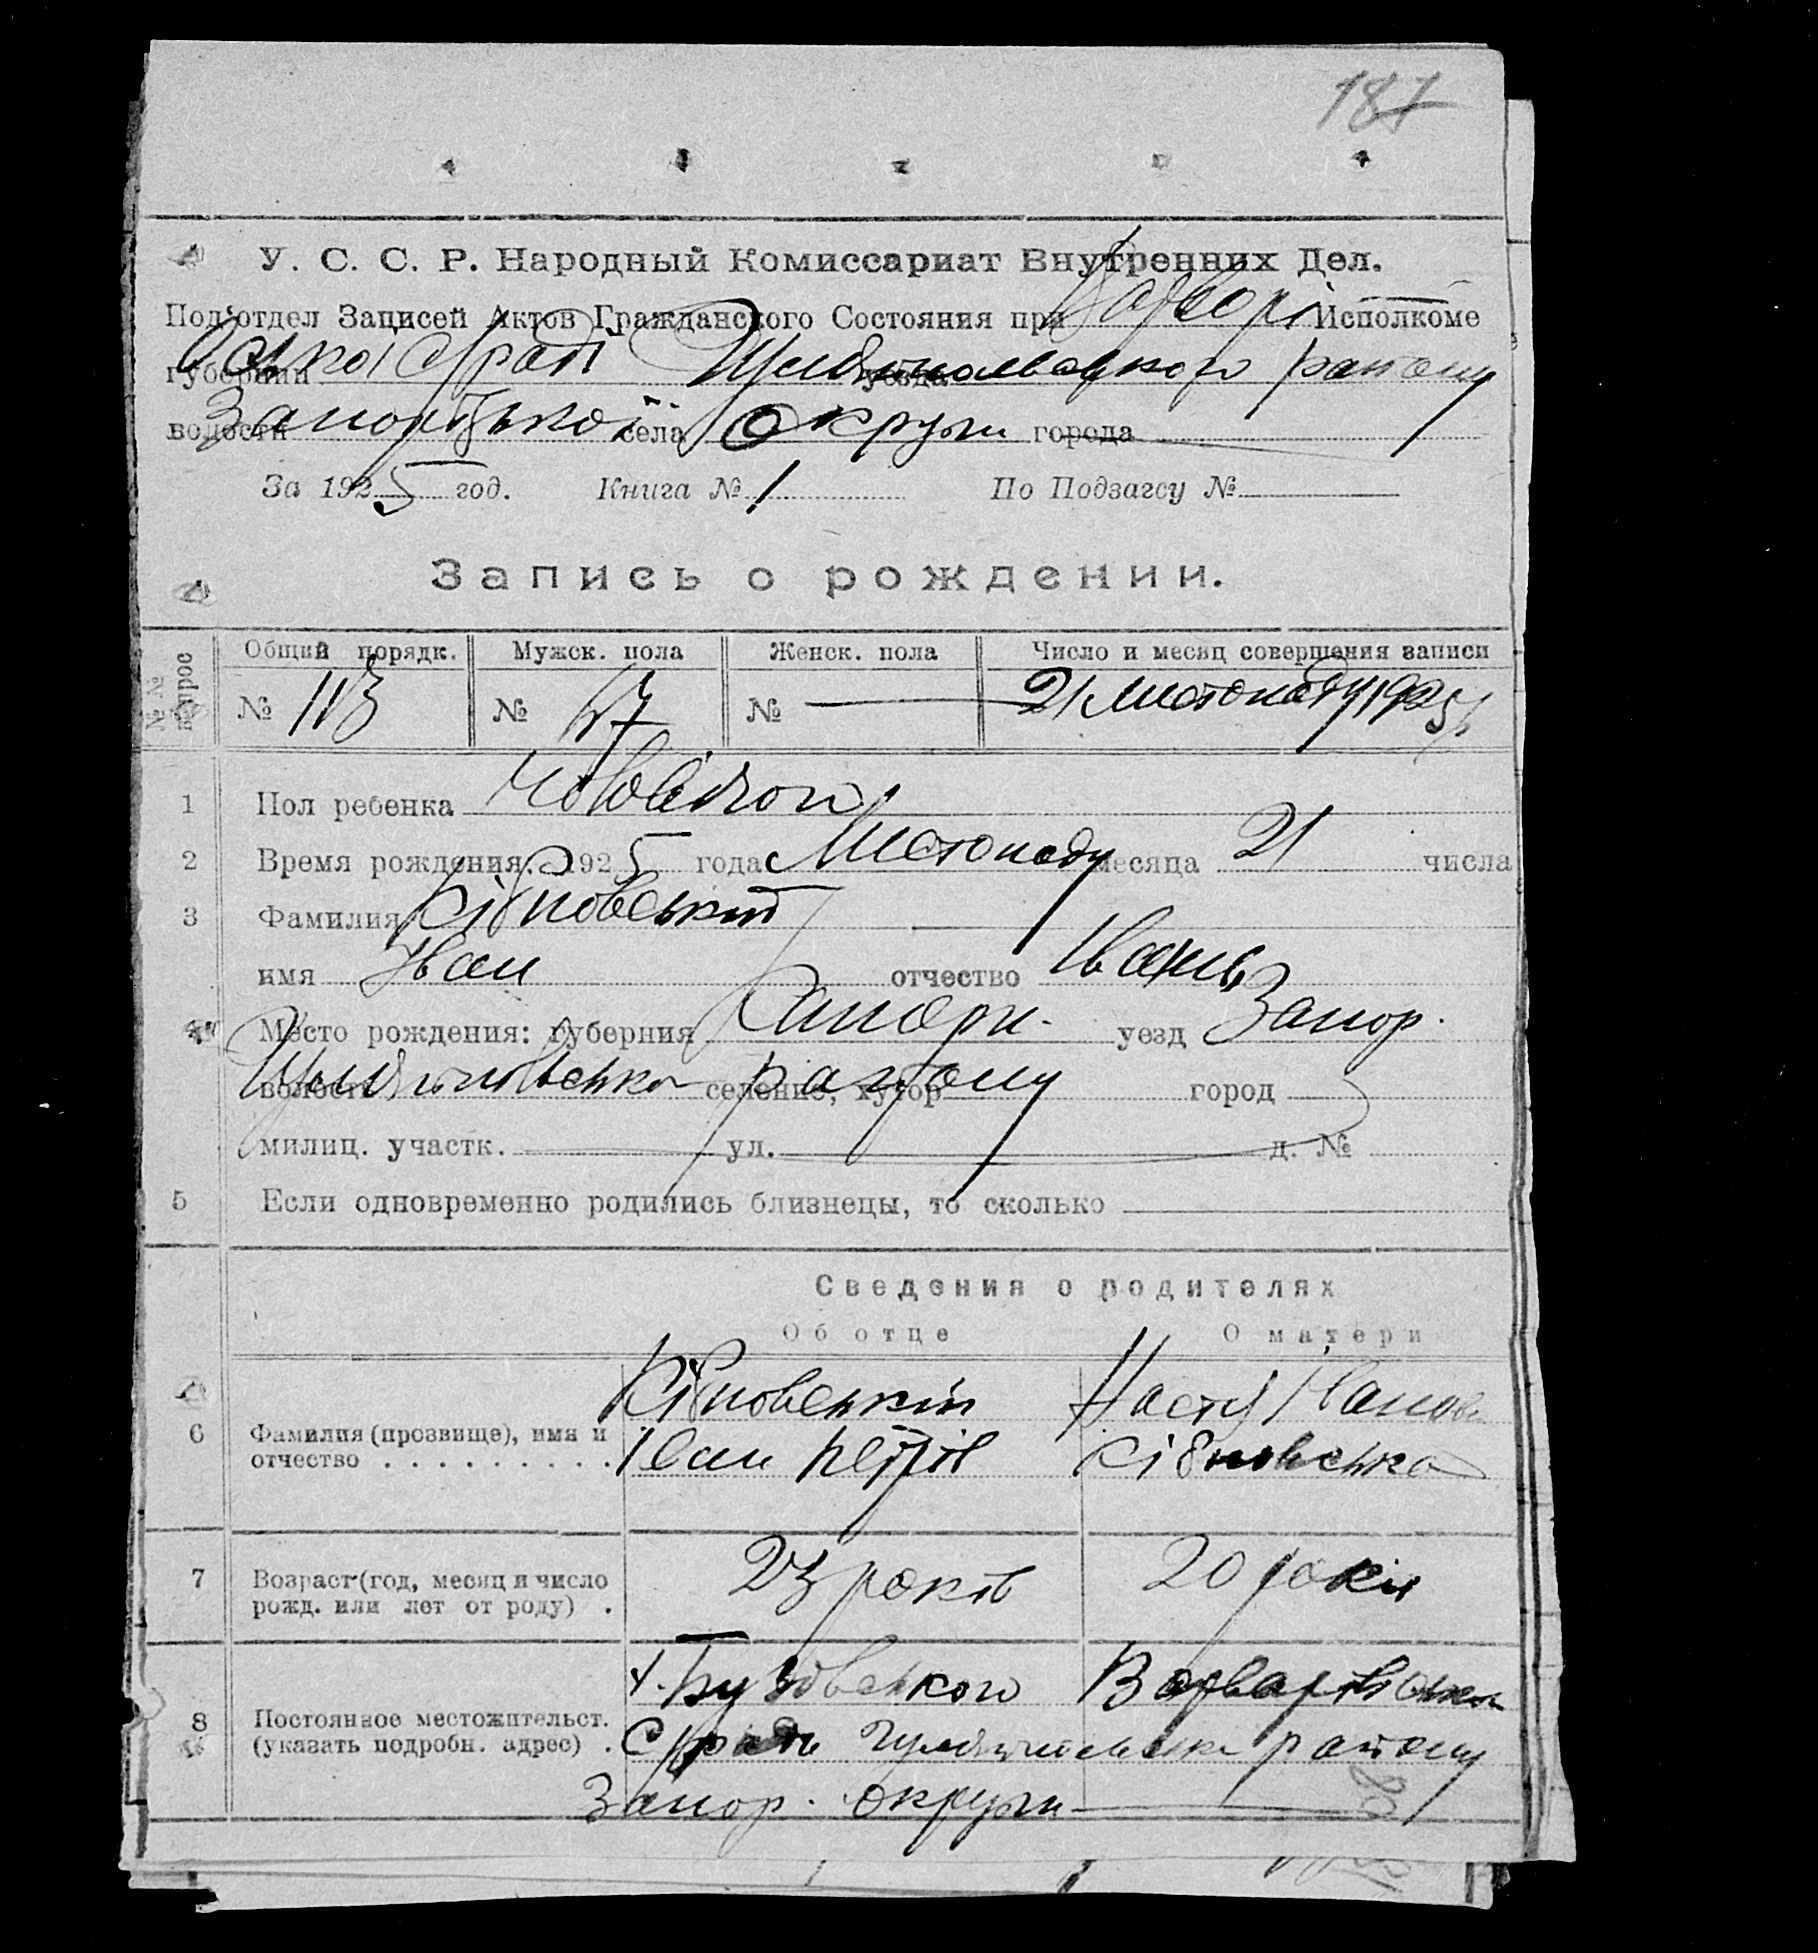 187
У. С. С. Р. Народный Комиссариат Внутренних Дел.
Под'отдел Записей Актов Гражданского Состояния при Исполкоме
губернии уезда району
волости Запорізької села Округи города
За 1925 год. Книга № 1 По Подзагсу №
Запись о рождении.
№№ вопрос Общий порядк. Мужск. пола Женск. пола Число и месяц совершения записи
№ 113 № 67 № 21 Листопаду 1925
1 Пол ребенка чоловічої
2 Время рождения: 1925 года Листопаду месяца 21 числа
3 Фамилия Кібновський
имя Іван отчество Іванів
Место рождения: губерния уезд Запор.
волость селение, хутор району город
милиц. участк. ул. д. №
5 Если одновременно родились близнецы, то сколько
Сведения о родителях
Об отце О матери
Кібновський Настя Іванов
6 Фамилия (прозвище), имя и отчество . . . . . . . . . Іван Петрів Кібновська
7 Возраст (год, месяц и число рожд. или лет от роду) . 23 років 20 років
х. Варварівської
8 Постоянное местожительст. (указать подробн. адрес) . С/ради району
Запор. округи